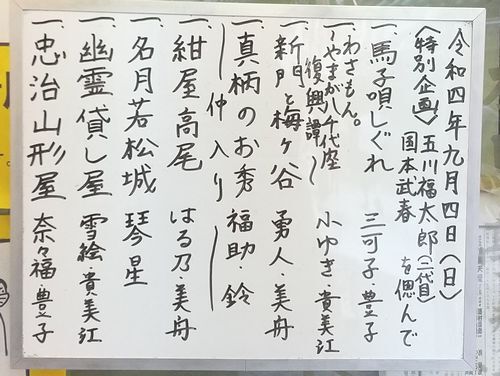 令和四年九月四日（日）
〈特別企画〉五川福太郎（二代目）
国本武春を偲んで
一、馬子唄しぐれ 三可子・豊子
一、わさもん。
〜やまが八千代座
復興譚〜 小ゆき・貴美江
一、新門と梅ヶ谷 勇人・美舟
一、真柄のお秀 福助・鈴
──仲入り──
一、紺屋高尾 はる乃・美舟
一、名月若松城 琴星
一、幽霊貸し屋 雪絵・貴美江
一、忠治山形屋 奈々福・豊子